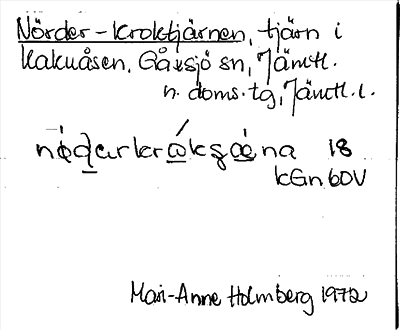 Nörder-Kroktjärnen, tjärn i
Kakuåsen, Gåxsjö sn, Jämtl.
n. doms.tg, Jämtl. l.
18
kGn60V
Mari-Anne Holmberg 1972